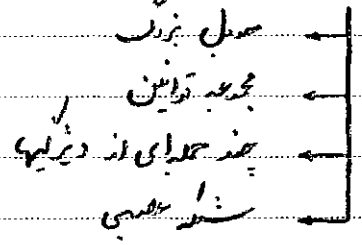 جدول بزرگ
مجموعه قوانین
چند جمله‌ای از ویژگیها
شبکه عصبی